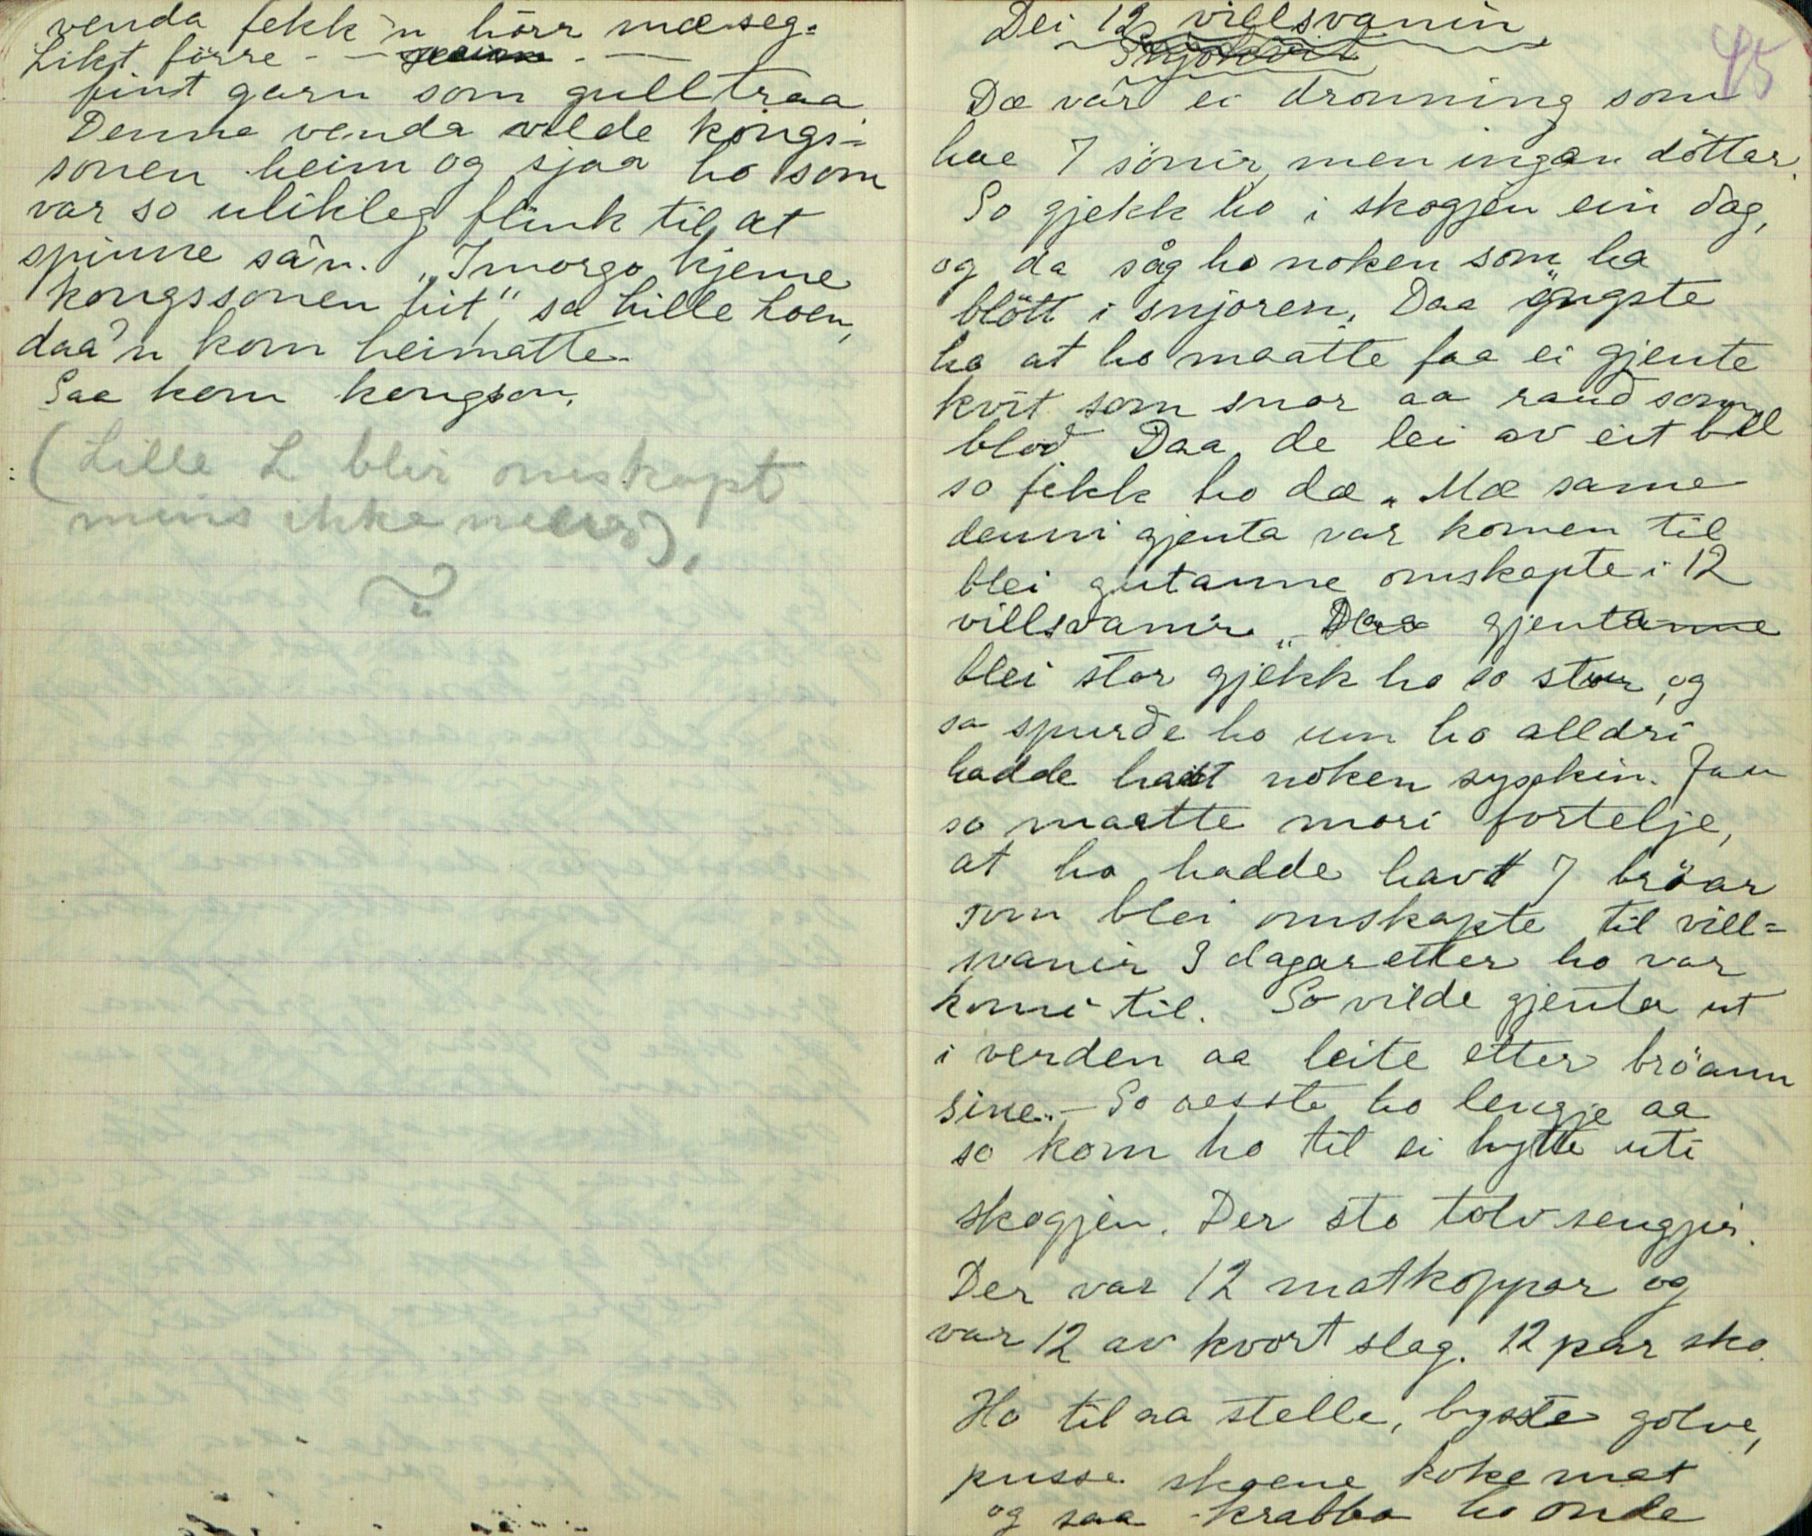 venda fekk'n hörr mæ seg.
Likt förre - -
fint garn som gulltraa
Denne venda vilde kongs-
sonen heim og sjaa ho som
var so ulikleg flink til at
spinne sån. „Imorgo kjeme
kongssonen hit", sa hille hoen,
daa'n kom heimatte.
Saa kom kongson.
(Lille L blir omskapt
mins ikke mere).
Dei 12 villsvanin
Snjokvit
45
Dæ var ei dronning som
hae 7 sönir, men ingen döttar.
So gjekk ho i skogjen ein dag,
og da såg ho noken som ha
blött i snjoren. Daa yngste
ho at ho maatte faa ei gjente
kvit som snor aa raud som
blod Daa de lei av eit bel
so fekk ho dæ „Mæ same
denni gjenta var komen til
blei gutanne omskapte i 12
villsvanir „ Daa gjentanne
blei stor gjekk ho so stur, og
sa spurde ho um ho alldri
hadde havt noken syskin. Jau
so maatte mori fortelje,
at ho hadde havt 7 bröar
som blei omskapte til vill-
svanir 3 dagar etter ho var
komi til. So vilde gjenta ut
i verden aa leite etter bröann
sine. - So reiste ho lengje aa
so kom ho til ei hytte uti
skogjen. Der sto tolv sengjir.
Der var 12 matkoppar og
var 12 av kvort slag. 12 par sko.
Ho til aa stelle, byste golve,
pusse skoene koke mat
og saa krabba ho onde